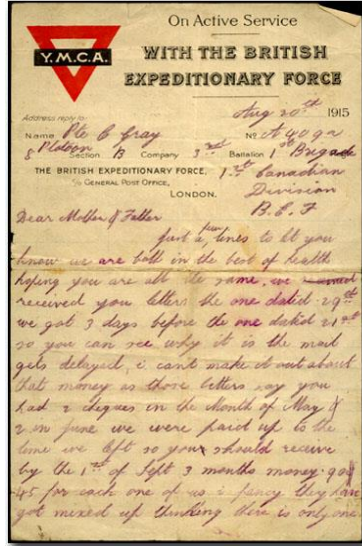 Y.M.C.A.
On Active Service
WITH THE BRITISH
EXPEDITIONARY FORCE
Aug 20th 1915
Address reply to:
Name Pte C Gray No A4092
8 Platoon Section B Company 3rd Battalion 1st Brigade
THE BRITISH EXPEDITIONARY FORCE, 1st Canadian
C/o GENERAL POST OFFICE, Division
LONDON. B.E.F
Dear Mother & Father
Just a few lines to let you
know we are both in the best of health
hoping you are all the same, we
received you letters the one datid 29th
we got 3 days before the one datid 21st
so you can see why it is the mail
gets delayed, i can't make it out about
that money as those letters say you
had 2 cheques in the Month of May &
2 in June we were paid up to the
time we left so you should receive
by the 1st of Sept 3 months money
45 for each one of us i fancy they have
got mixed up thinking there is only one